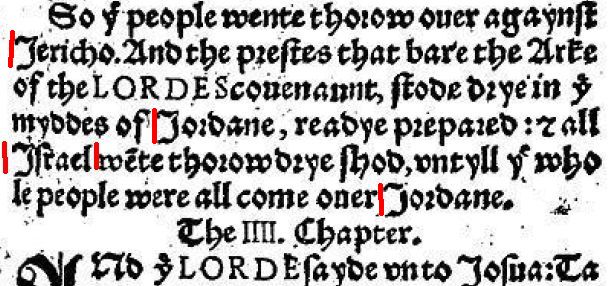 So yͤ people wente thorow ouer agaynſt
Jericho. And the preſtes that bare the Arke
of the LORDES couenaunt, ſtode drye in yͤ
myddes of Jordane, readye prepared: ⁊ all
Iſrael wēte thorow drye ſhod, vntyll yͤ who
le people were all come ouer Jordane.
The IIII. Chapter.
ANd yͤ LORDE ſayde vnto Joſua: Ta